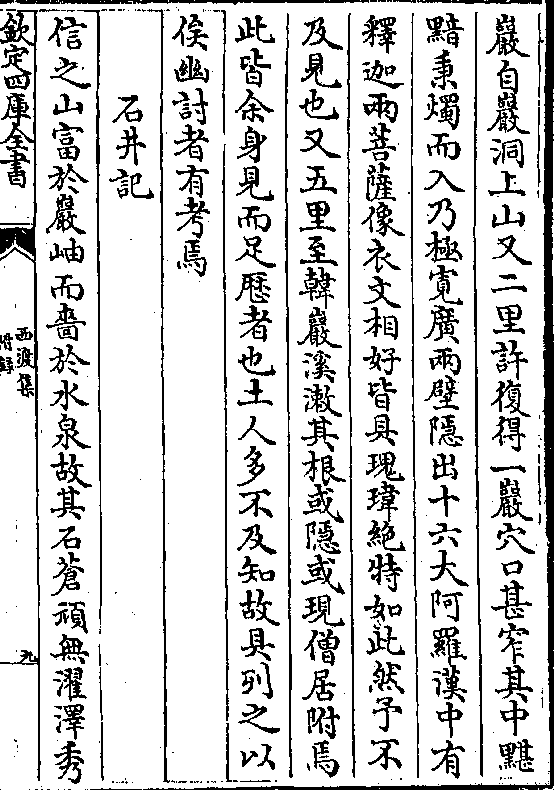 巖自巖洞上山又二里許復得一巖穴口甚窄其中黮
黯秉燭而入乃極寛廣兩壁隱出十六大阿羅漢中有
釋迦兩菩薩像衣文相好皆具瑰瑋絶特如此然予不
及見也又五里至韓巖溪漱其根或隱或現僧居附焉
此皆余身見而足歴者也土人多不及知故具列之以
俟幽討者有考焉
石井記
信之山富於巖岫而嗇於水泉故其石蒼頑無濯澤秀
欽定四庫全書
西渡集
附錄
九